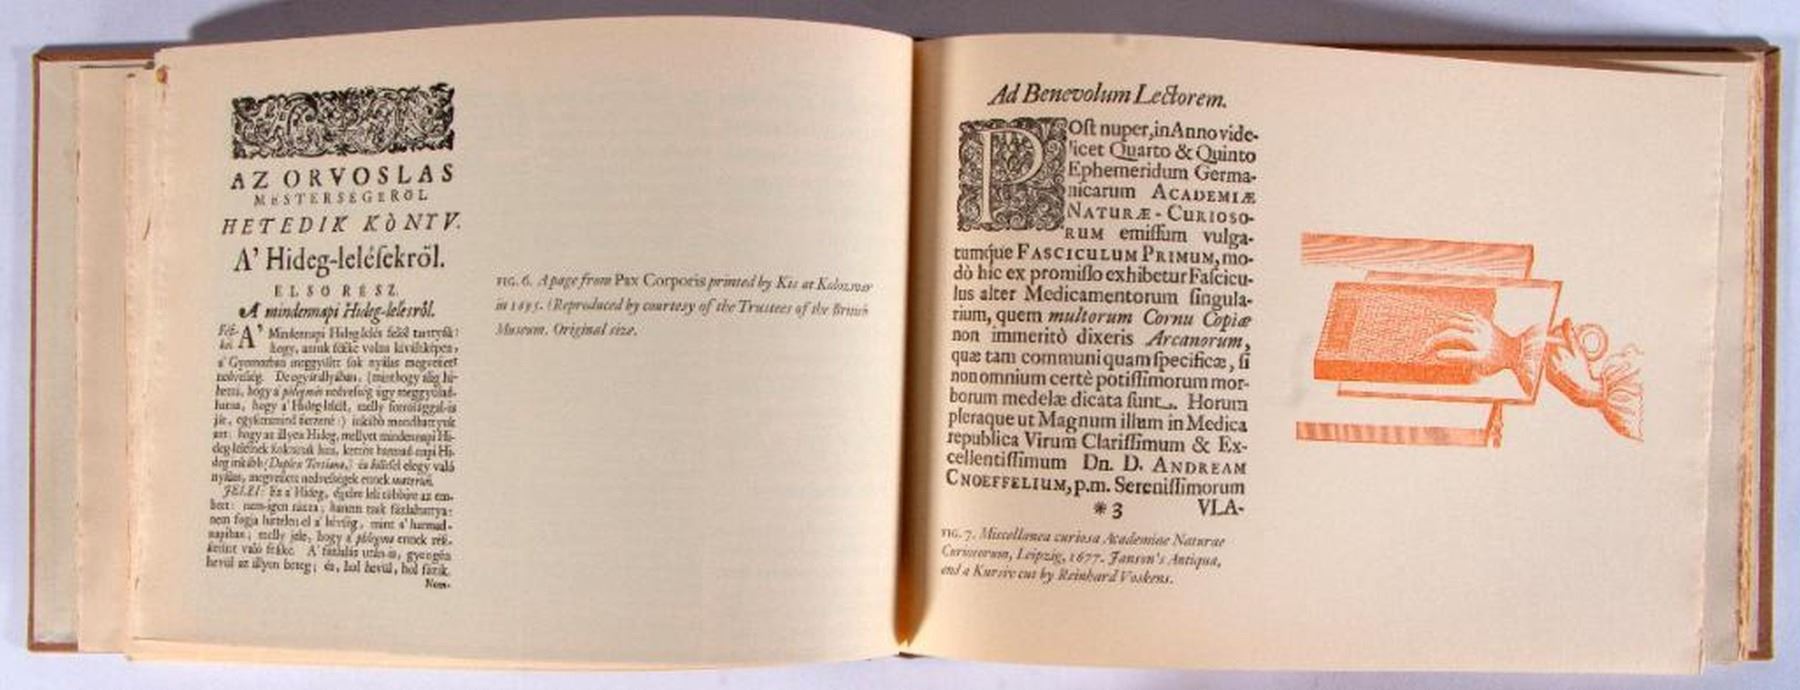 AZ ORVOSLAS
MESTERSEGERÖL
HETEDIK KÖNTV.
A' Hideg-leléſekröl.
ELSO RESZ.
A mindennapi Hideg-lelesröl.
A' Mindennapi Hideg-lelés féſké tartyák:
hogy, annak féſke volna kiváltképen,
a' Gyomorban meggyültt ſok nyálas megveſzett
nedveſség. De egyáránlyában, (minthogy alig hi-
hetni, hogy a' phlegmás nedveſség úgy meggyúlad-
hatna, hogy a' Hideg-lelést, melly forrósággal-is
jár,
inkább mondhattyuk
azt: hogy az illyen Hideg, mellyet mindennapi Hi-
deg-lelésnek ſokan
kettös harmad-napi Hi-
deg inkább (Duplex Tertiana,) és
elegy való
nyálas, megveſzett nedveſségek ennek materiáji.
JELEI: Ez a' Hideg,
leli többire az em-
bert: nem-igen rázza; hanem csak fázlalhattya:
nem fogja hirtelen el a' hévſég, mint a' harmad-
napiban; melly jele, hogy a' phlegma ennek rész-
ſzerint való féſzke. A' fázlalás után-is, gyengén
hevül az illyen beteg; és, hol hevül, hol fázik.
Nem-
FIG. 6. A page from Pax Corporis printed by Kis at Kolozsvar
in 1695. (Reproduced by courtesy of the Trustees of the British
Museum. Original size.
Ad Benevolum Lectorem.
POſt nuper, in Anno vide-
licet Quarto & Quinto
Ephemeridum Germa-
nicarum ACADEMIÆ
NATURÆ-CURIOSO-
RUM emiſſum vulga-
tumque FASCICULUM PRIMUM, mo-
dò hic ex promiſſo exhibetur Faſcicu-
lus alter Medicamentorum ſingula-
rium, quem multorum Cornu Copiæ
non immeritò dixeris Arcanorum,
quæ tam communi quam ſpecificæ, ſi
non omnium certè potiſſimorum mor-
borum medelæ dicata ſunt. Horum
pleraque ut Magnum illum in Medica
republica Virum Clariſſimum & Ex-
cellentiſſimum Dn. D. ANDREAM
CNOEFFELIUM, p.m. Sereniſſimorum
* 3 VLA-
FIG. 7. Miscellanea curiosa Academiae Naturae
Curiosorum, Leipzig, 1677. Janson's Antiqua,
and a Kursiv cut by Reinhard Voskens.